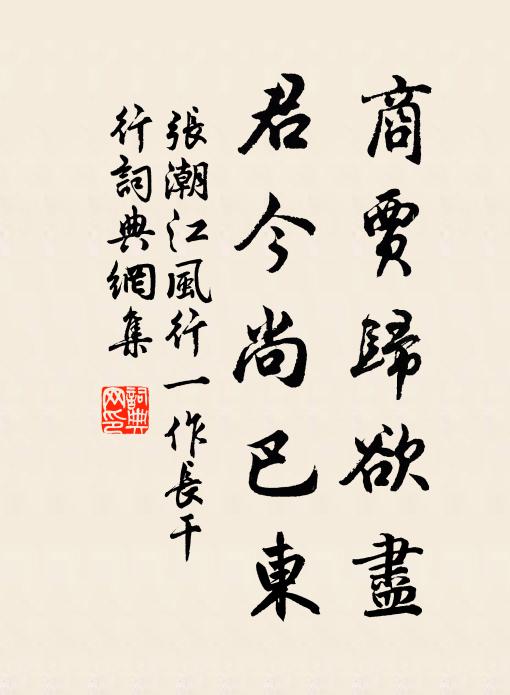 商賈歸欲盡
君今尚巴東
張潮江風行一作長干
行詞典網集
詞典
网印